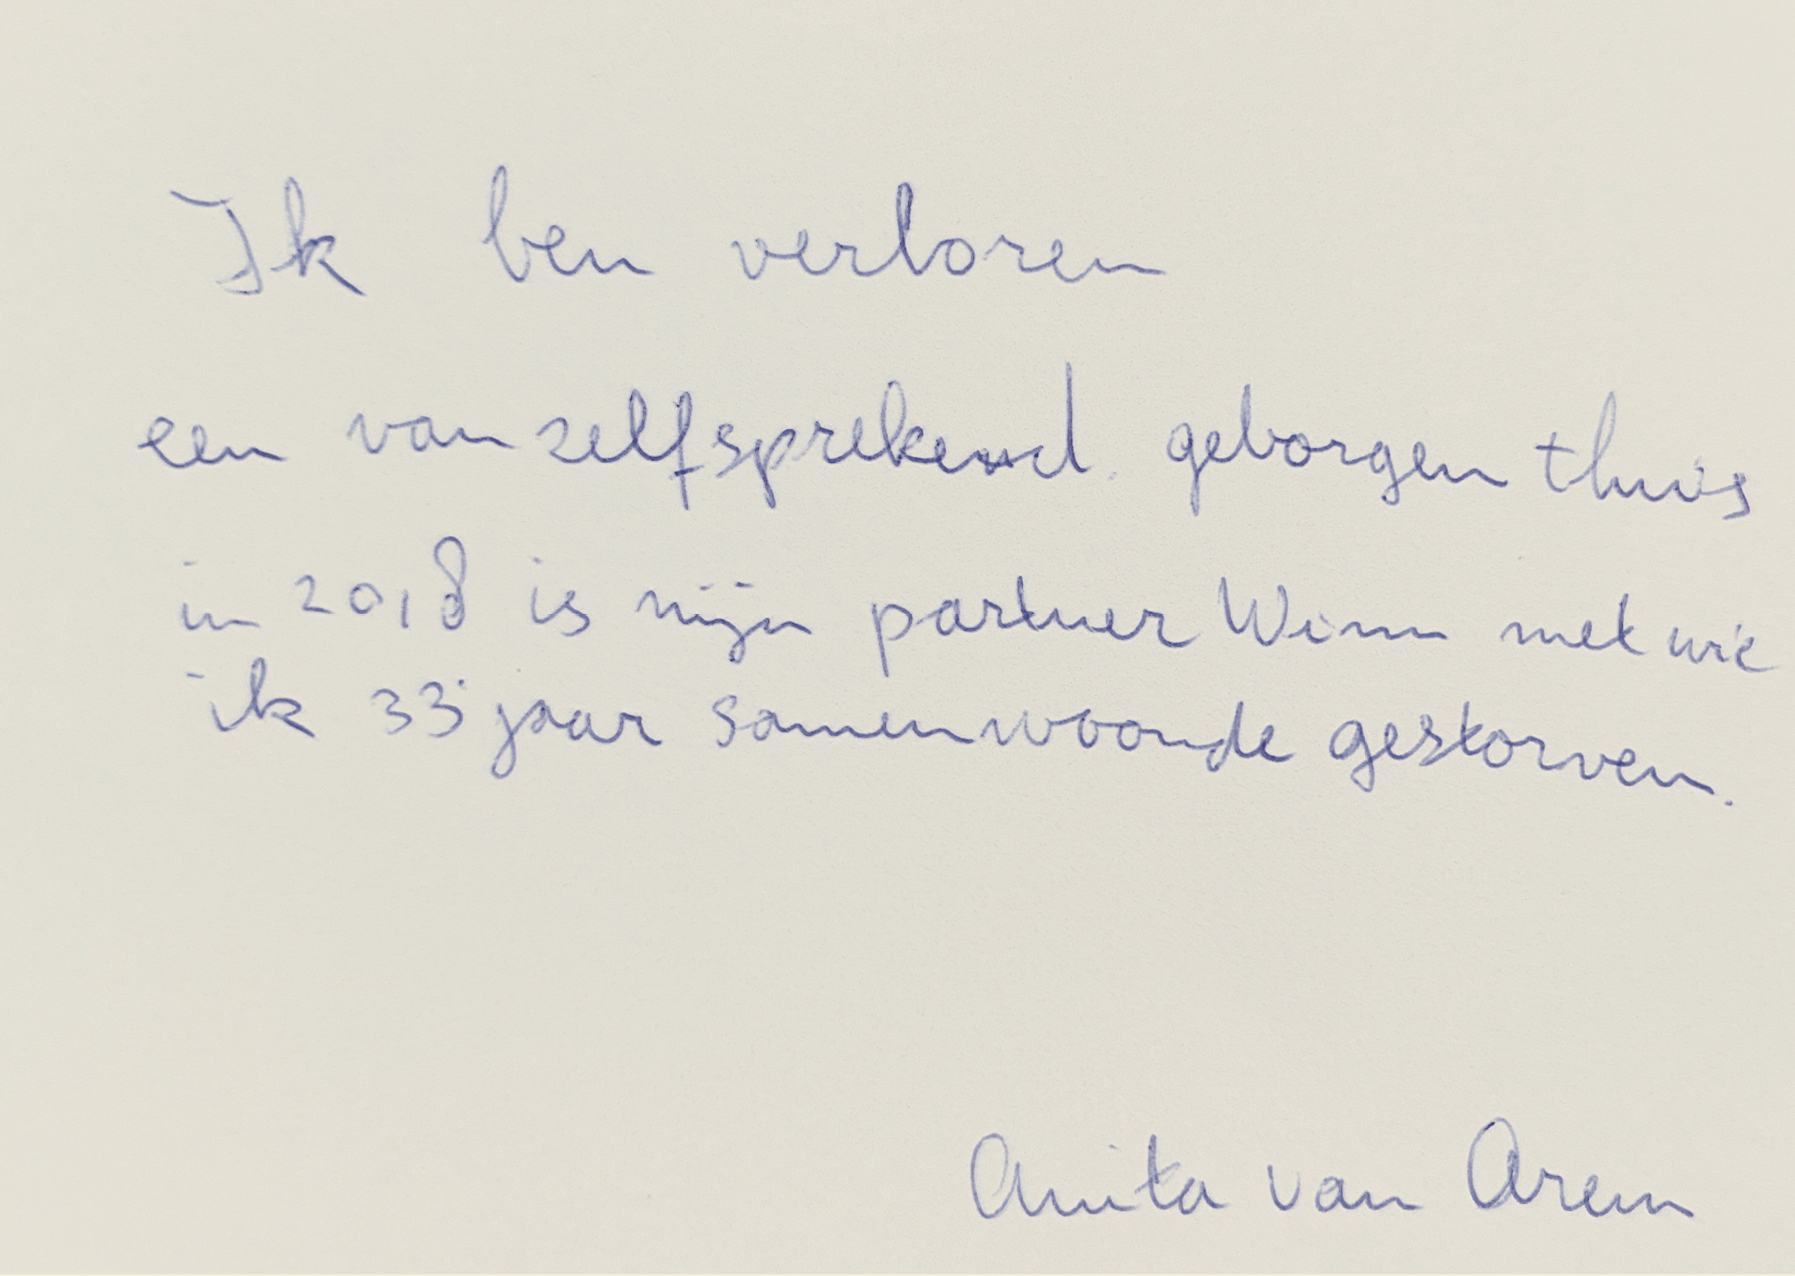 Ik ben verloren
een vanzelfsprekend geborgen thuis
in 2018 is mijn partner Wim met wie
ik 33 jaar samenwoonde gestorven.
Anita van Arem